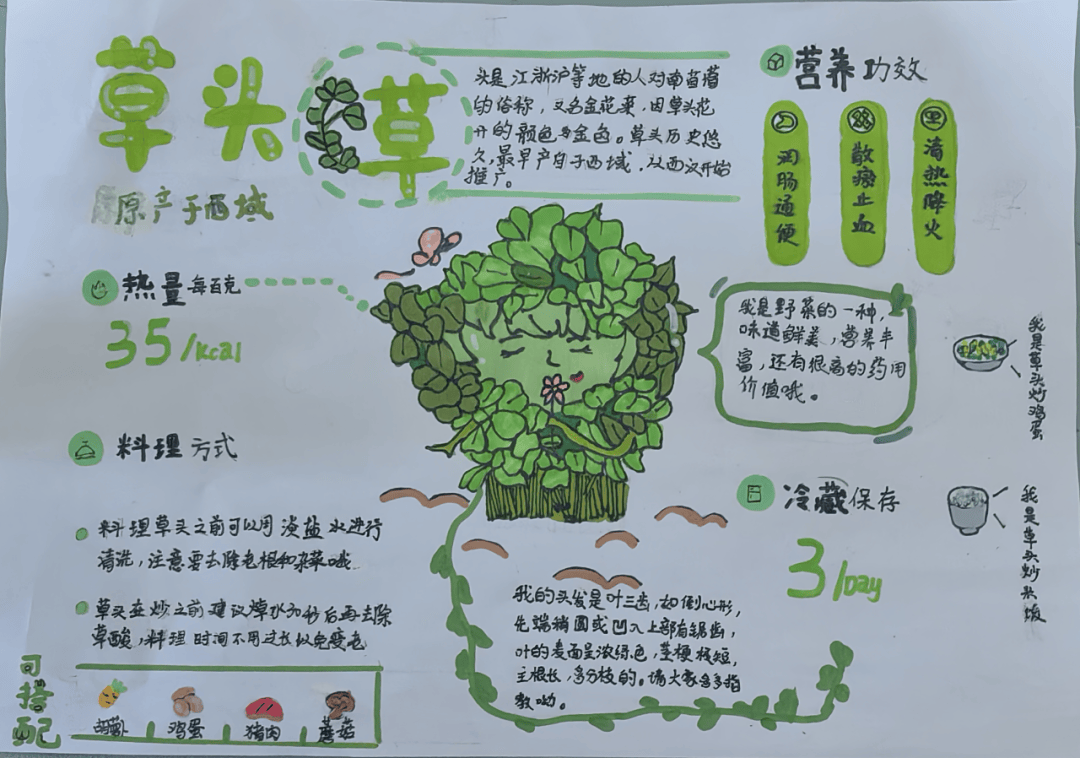 草头
草
原产于西域
头是江浙沪等地的人对南苜蓿
的俗称，又名金花菜，因草头花
开的颜色为金色。草头历史悠
久，最早产自于西域，从西汉开始
推广。
营养功效
润肠通便
散瘀止血
清热降火
热量每百克
35/kcal
我是野菜的一种，
味道鲜美，营养丰
富，还有很高的药用
价值哦。
我是草头炒鸡蛋
料理方式
料理草头之前可以用淡盐水进行
清洗，注意要去除老根和杂菜哦
草头在炒之前建议焯水30秒后再去除
草酸，料理时间不用过长以免变老
冷藏保存
3/Day
我是草头炒米饭
我的头发是叶三齿，如倒心形，
先端稍圆或凹入上部有锯齿，
叶的表面呈浓绿色，茎梗极短，
主根长，多分枝的。请大家多多指
教呦。
可搭配
胡萝卜
鸡蛋
猪肉
蘑菇